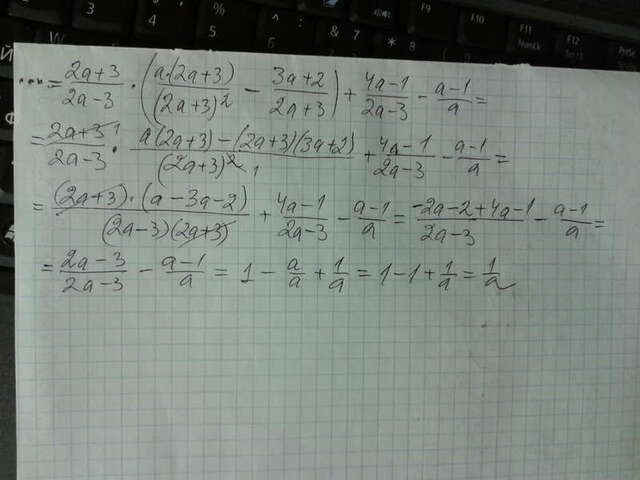 ... = \frac{2a+3}{2a-3} · ( \frac{a·(2a+3)}{(2a+3)^2} - \frac{3a+2}{2a+3} ) + \frac{4a-1}{2a-3} - \frac{a-1}{a} =
= \frac{2a+3}{2a-3} · \frac{a(2a+3)-(2a+3)(3a+2)}{(2a+3)^2} + \frac{4a-1}{2a-3} - \frac{a-1}{a} =
= \frac{(2a+3)·(a-3a-2)}{(2a-3)(2a+3)} + \frac{4a-1}{2a-3} - \frac{a-1}{a} = \frac{-2a-2+4a-1}{2a-3} - \frac{a-1}{a} =
= \frac{2a-3}{2a-3} - \frac{a-1}{a} = 1 - \frac{a}{a} + \frac{1}{a} = 1-1+\frac{1}{a} = \frac{1}{a}